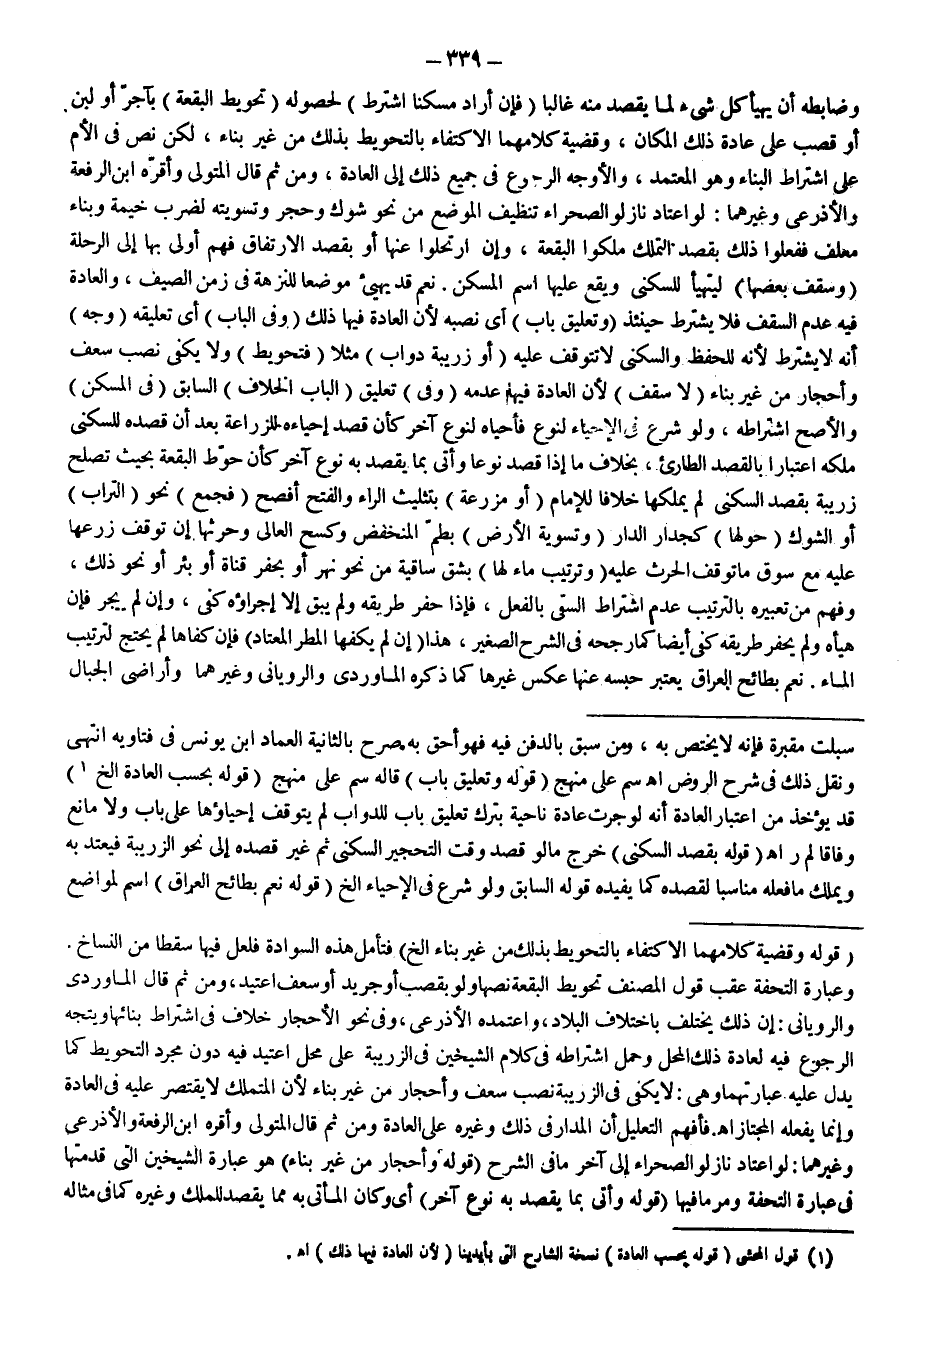 – ٣٣٩ –
وضابطه أن يهيأ كل شىء لما يقصد منه غالبا ( فإن أراد مسكنا اشترط ) لحصوله ( تحويط البقعة ) بآجرّ أو لبن
أو قصب على عادة ذلك المكان ، وقضية كلامهما الاكتفاء بالتحويط بذلك من غير بناء ، لكن نص فى الأم
على اشتراط البناء وهو المعتمد ، والأوجه الرجوع فى جميع ذلك إلى العادة ، ومن ثم قال المتولى وأقرّه ابن الرفعة
والأذرعى وغيرهما : لو اعتاد نازلو الصحراء تنظيف الموضع من نحو شوك وحجر وتسويته لضرب خيمة وبناء
معلف ففعلوا ذلك بقصد التملك ملكوا البقعة ، وإن ارتحلوا عنها أو بقصد الارتفاق فهم أولى بها إلى الرحلة
( وسقف بعضها ) ليتهيأ للسكنى ويقع عليها اسم المسكن . نعم قد يهيئ موضعا للنزهة فى زمن الصيف ، والعادة
فيه عدم السقف فلا يشترط حينئذ ( وتعليق باب ) أى نصبه لأن العادة فيها ذلك ( وفى الباب ) أى تعليقه ( وجه )
أنه لا يشترط لأنه للحفظ والسكنى لاتتوقف عليه ( أو زريبة دواب ) مثلا ( فتحويط ) ولا يكفى نصب سعف
وأحجار من غير بناء ( لا سقف ) لأن العادة فيها عدمه ( وفى ) تعليق ( الباب الخلاف ) السابق ( فى المسكن )
والأصح اشتراطه ، ولو شرع فى الإحياء لنوع فأحياه لنوع آخر كأن قصد إحياءه للزراعة بعد أن قصده للسكنى
ملكه اعتبارا بالقصد الطارئ ، بخلاف ما إذا قصد نوعا وأتى بما يقصد به نوع آخر كأن حوّط البقعة بحيث تصلح
زريبة بقصد السكنى لم يملكها خلافا للإمام ( أو مزرعة ) بتثليث الراء والفتح أفصح ( فجمع ) نحو ( التراب )
أو الشوك ( حولها ) كجدار الدار ( وتسوية الأرض ) بطمّ المنخفض وكسح العالى وحرثها إن توقف زرعها
عليه مع سوق ماتوقف الحرث عليه( وترتيب ماء لها ) بشق ساقية من نحو نهر أو بحفر قناة أو بئر أو نحو ذلك ،
وفهم من تعبيره بالترتيب عدم اشتراط السقى بالفعل ، فإذا حفر طريقه ولم يبق إلا إجراؤه كفى ، وإن لم يجر فإن
هيأه ولم يحفر طريقه كفى أيضا كما رجحه فى الشرح الصغير ، هذا( إن لم يكفها المطر المعتاد) فإن كفاها لم يحتج لترتيب
الماء . نعم بطائح العراق يعتبر حبسه عنها عكس غيرها كما ذكره الماوردى والرويانى وغيرهما وأراضى الجبال
سبلت مقبرة فإنه لا يختص به ، ومن سبق بالدفن فيه فهو أحق به.صرح بالثانية العماد ابن يونس فى فتاويه انتهى
ونقل ذلك فى شرح الروض اه سم على منهج ( قوله وتعليق باب ) قاله سم على منهج ( قوله بحسب العادة الخ ١ )
قد يؤخذ من اعتبار العادة أنه لو جرت عادة ناحية بترك تعليق باب للدواب لم يتوقف إحياؤها على باب ولا مانع
وفاقا لم ر اه ( قوله بقصد السكنى ) خرج مالو قصد وقت التحجير السكنى ثم غير قصده إلى نحو الزريبة فيعتد به
ويملك مافعله مناسبا لقصده كما يفيده قوله السابق ولو شرع فى الإحياء الخ ( قوله نعم بطائح العراق ) اسم لمواضع
( قوله وقضية كلامهما الاكتفاء بالتحويط بذلك من غير بناء الخ) فتأمل هذه السوادة فلعل فيها سقطا من النساخ .
وعبارة التحفة عقب قول المصنف تحويط البقعة نصها ولو بقصب أو جريد أو سعف اعتيد ، ومن ثم قال الماوردى
والرويانى : إن ذلك يختلف باختلاف البلاد ، واعتمده الأذرعى ، وفى نحو الأحجار خلاف فى اشتراط بنائها ويتجه
الرجوع فيه لعادة ذلك المحل وحمل اشتراطه فى كلام الشيخين فى الزريبة على محل اعتيد فيه دون مجرد التحويط كما
يدل عليه عبارتهما وهى : لا يكفى فى الزريبة نصب سعف وأحجار من غير بناء لأن المتملك لا يقتصر عليه فى العادة
وإنما يفعله المجتاز اه.فأفهم التعليل أن المدار فى ذلك وغيره على العادة ومن ثم قال المتولى وأقره ابن الرفعة والأذرعى
وغيرهما : لو اعتاد نازلو الصحراء إلى آخر مافى الشرح (قوله وأحجار من غير بناء) هو عبارة الشيخين التى قدمتها
فى عبارة التحفة ومر مافيها (قوله وأتى بما يقصد به نوع آخر) أى وكان المأتى به مما يقصد للملك وغيره كما فى مثاله
(١) قول المحشى ( قوله بحسب العادة ) نسخة الشارح التى بأيدينا ( لأن العادة فيها ذلك ) اه .